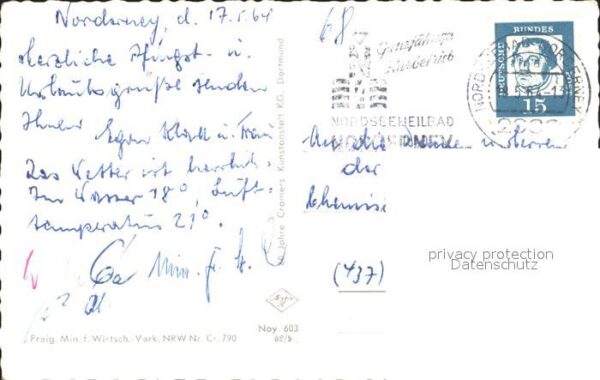 Norderney, d. 17.5.64
Herzliche Pfingst- u.
Urlaubsgrüße senden
Ihnen Egon Klatt u. Frau
Das Wetter ist herrlich.
Im Wasser 18°, Luft-
temperatur 21°.
68
Ganzjähriger
Kurbetrieb
NORDSEEHEILBAD
NORDERNEY
DEUTSCHE BUNDESPOST
15
An die Damen u. Herren
der
Chemie
(437)
privacy protection
Datenschutz
Jahre Cramers Kunstanstalt KG, Dortmund
Noy 603
Freig. Min. f. Wirtsch.-Verk. NRW Nr. Cr. 790